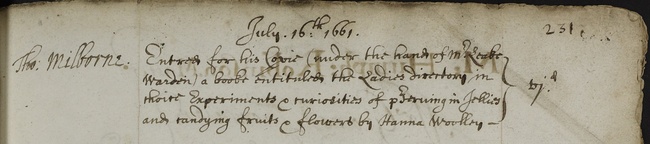 July. 16.th 1661.
231
Tho: Milborne:
Entred for his Copie (under the hand of Mr Leake
Warden) a booke entituled the Ladies directory in
choice Experiments & curiosities of pserving in Jellies
and candying fruits & flowers by Hanna Woolley —
vj.d